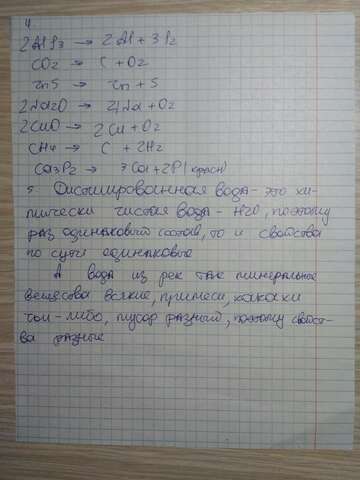 4
2AlI3 → 2Al + 3I2
CO2 → C + O2
ZnS → Zn + S
2Na2O → 4Na + O2
2CuO → 2Cu + O2
CH4 → C + 2H2
Ca3P2 → 3Ca + 2P (красн)
5 Дистилированная вода - это хи-
мически чистая вода - H2O, поэтому
раз одинаковый состав, то и свойства
по сути одинаковые
А вода из рек там минеральные
вещества всякие, примеси, какахи
чьи-либо, мусор разный, поэтому свойст-
ва разные